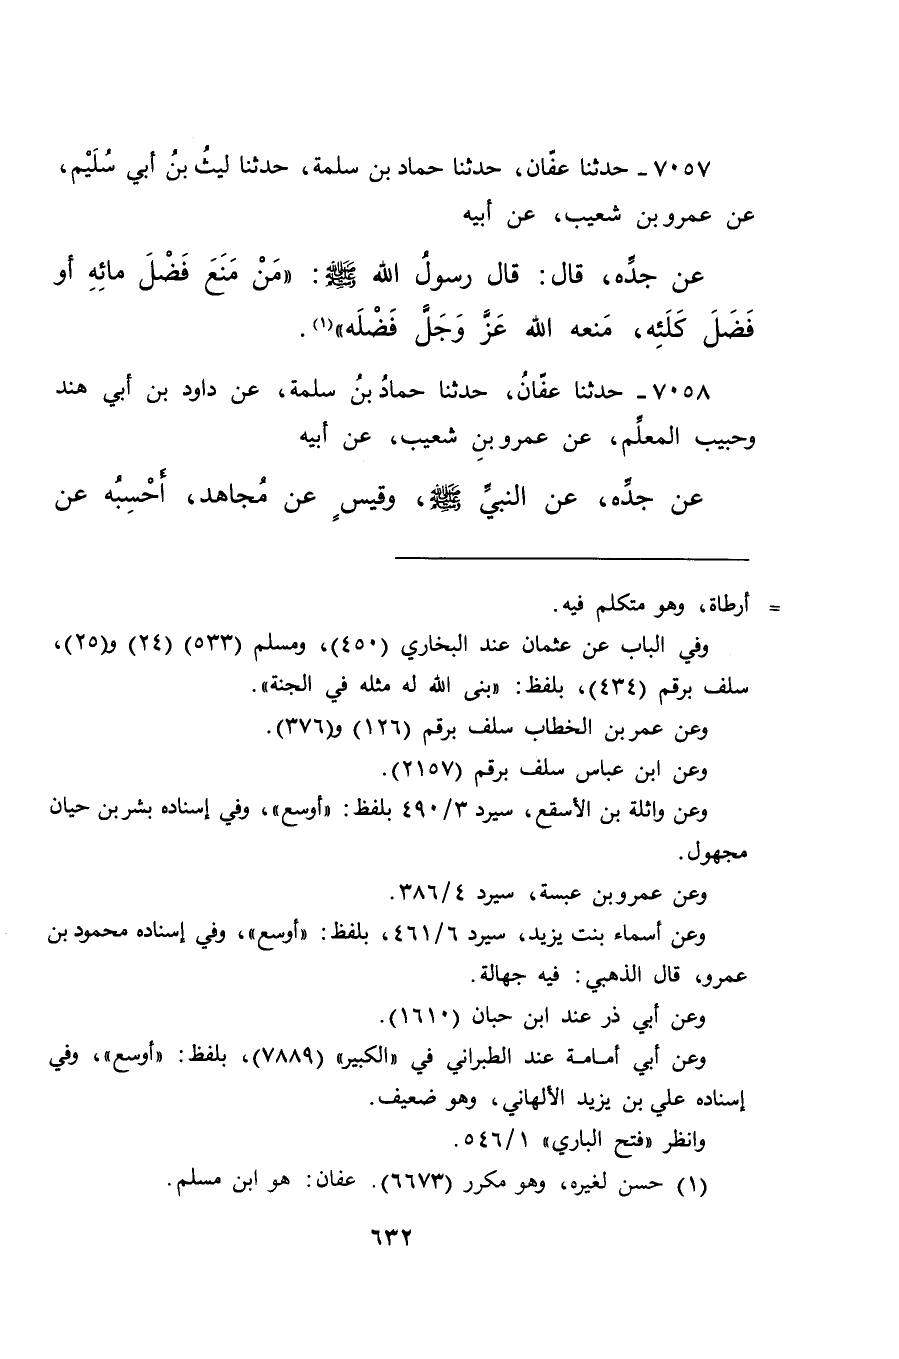 ٧٠٥٧ ـ حدثنا عفّان، حدثنا حماد بن سلمة، حدثنا ليثُ بنُ أبي سُلَيْم،
عن عمرو بن شعيب، عن أبيه
عن جدِّه، قال: قال رسولُ الله ﷺ: «مَنْ مَنَعَ فَضْلَ مائِهِ أو
فَضَلَ كَلَئِه، مَنعه الله عَزَّ وَجَلَّ فَضْلَه»(١).
٧٠٥٨ ـ حدثنا عفّانُ، حدثنا حمادُ بنُ سلمة، عن داود بن أبي هند
وحبيب المعلِّم، عن عمرو بنِ شعيب، عن أبيه
عن جدِّه، عن النبيِّ ﷺ، وقيسٍ عن مُجاهد، أَحْسِبُه عن
= أرطاة، وهو متكلم فيه.
وفي الباب عن عثمان عند البخاري (٤٥٠)، ومسلم (٥٣٣) (٢٤) و(٢٥)،
سلف برقم (٤٣٤)، بلفظ: «بنى الله له مثله في الجنة».
وعن عمر بن الخطاب سلف برقم (١٢٦) و(٣٧٦).
وعن ابن عباس سلف برقم (٢١٥٧).
وعن واثلة بن الأسقع، سيرد ٤٩٠/٣ بلفظ: «أوسع»، وفي إسناده بشر بن حيان
مجهول.
وعن عمرو بن عبسة، سيرد ٣٨٦/٤.
وعن أسماء بنت يزيد، سيرد ٤٦١/٦، بلفظ: «أوسع»، وفي إسناده محمود بن
عمرو، قال الذهبي: فيه جهالة.
وعن أبي ذر عند ابن حبان (١٦١٠).
وعن أبي أمامة عند الطبراني في «الكبير» (٧٨٨٩)، بلفظ: «أوسع»، وفي
إسناده علي بن يزيد الألهاني، وهو ضعيف.
وانظر «فتح الباري» ٥٤٦/١.
(١) حسن لغيره، وهو مكرر (٦٦٧٣). عفان: هو ابن مسلم.
٦٣٢